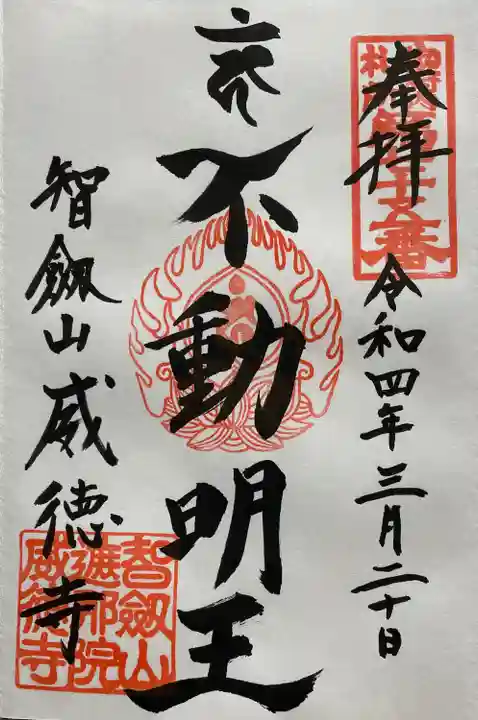 奉拝
令和四年三月二十日
不動明王
智劔山威徳寺
智劔山
遮那院
威徳寺